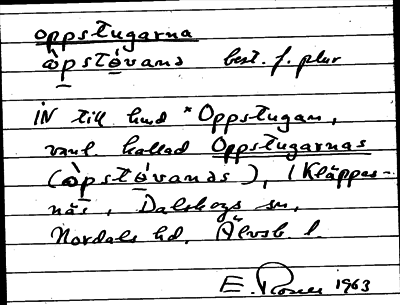 oppstugarna
òpstóvana best. f. plur
IN till hmd *Oppstugan,
vanl. kallad Oppstugarnas
(òpstóvanas), i Kläppes-
näs, Dalskogs sn,
Nordals hd, Älvsb. l.
E. 1963